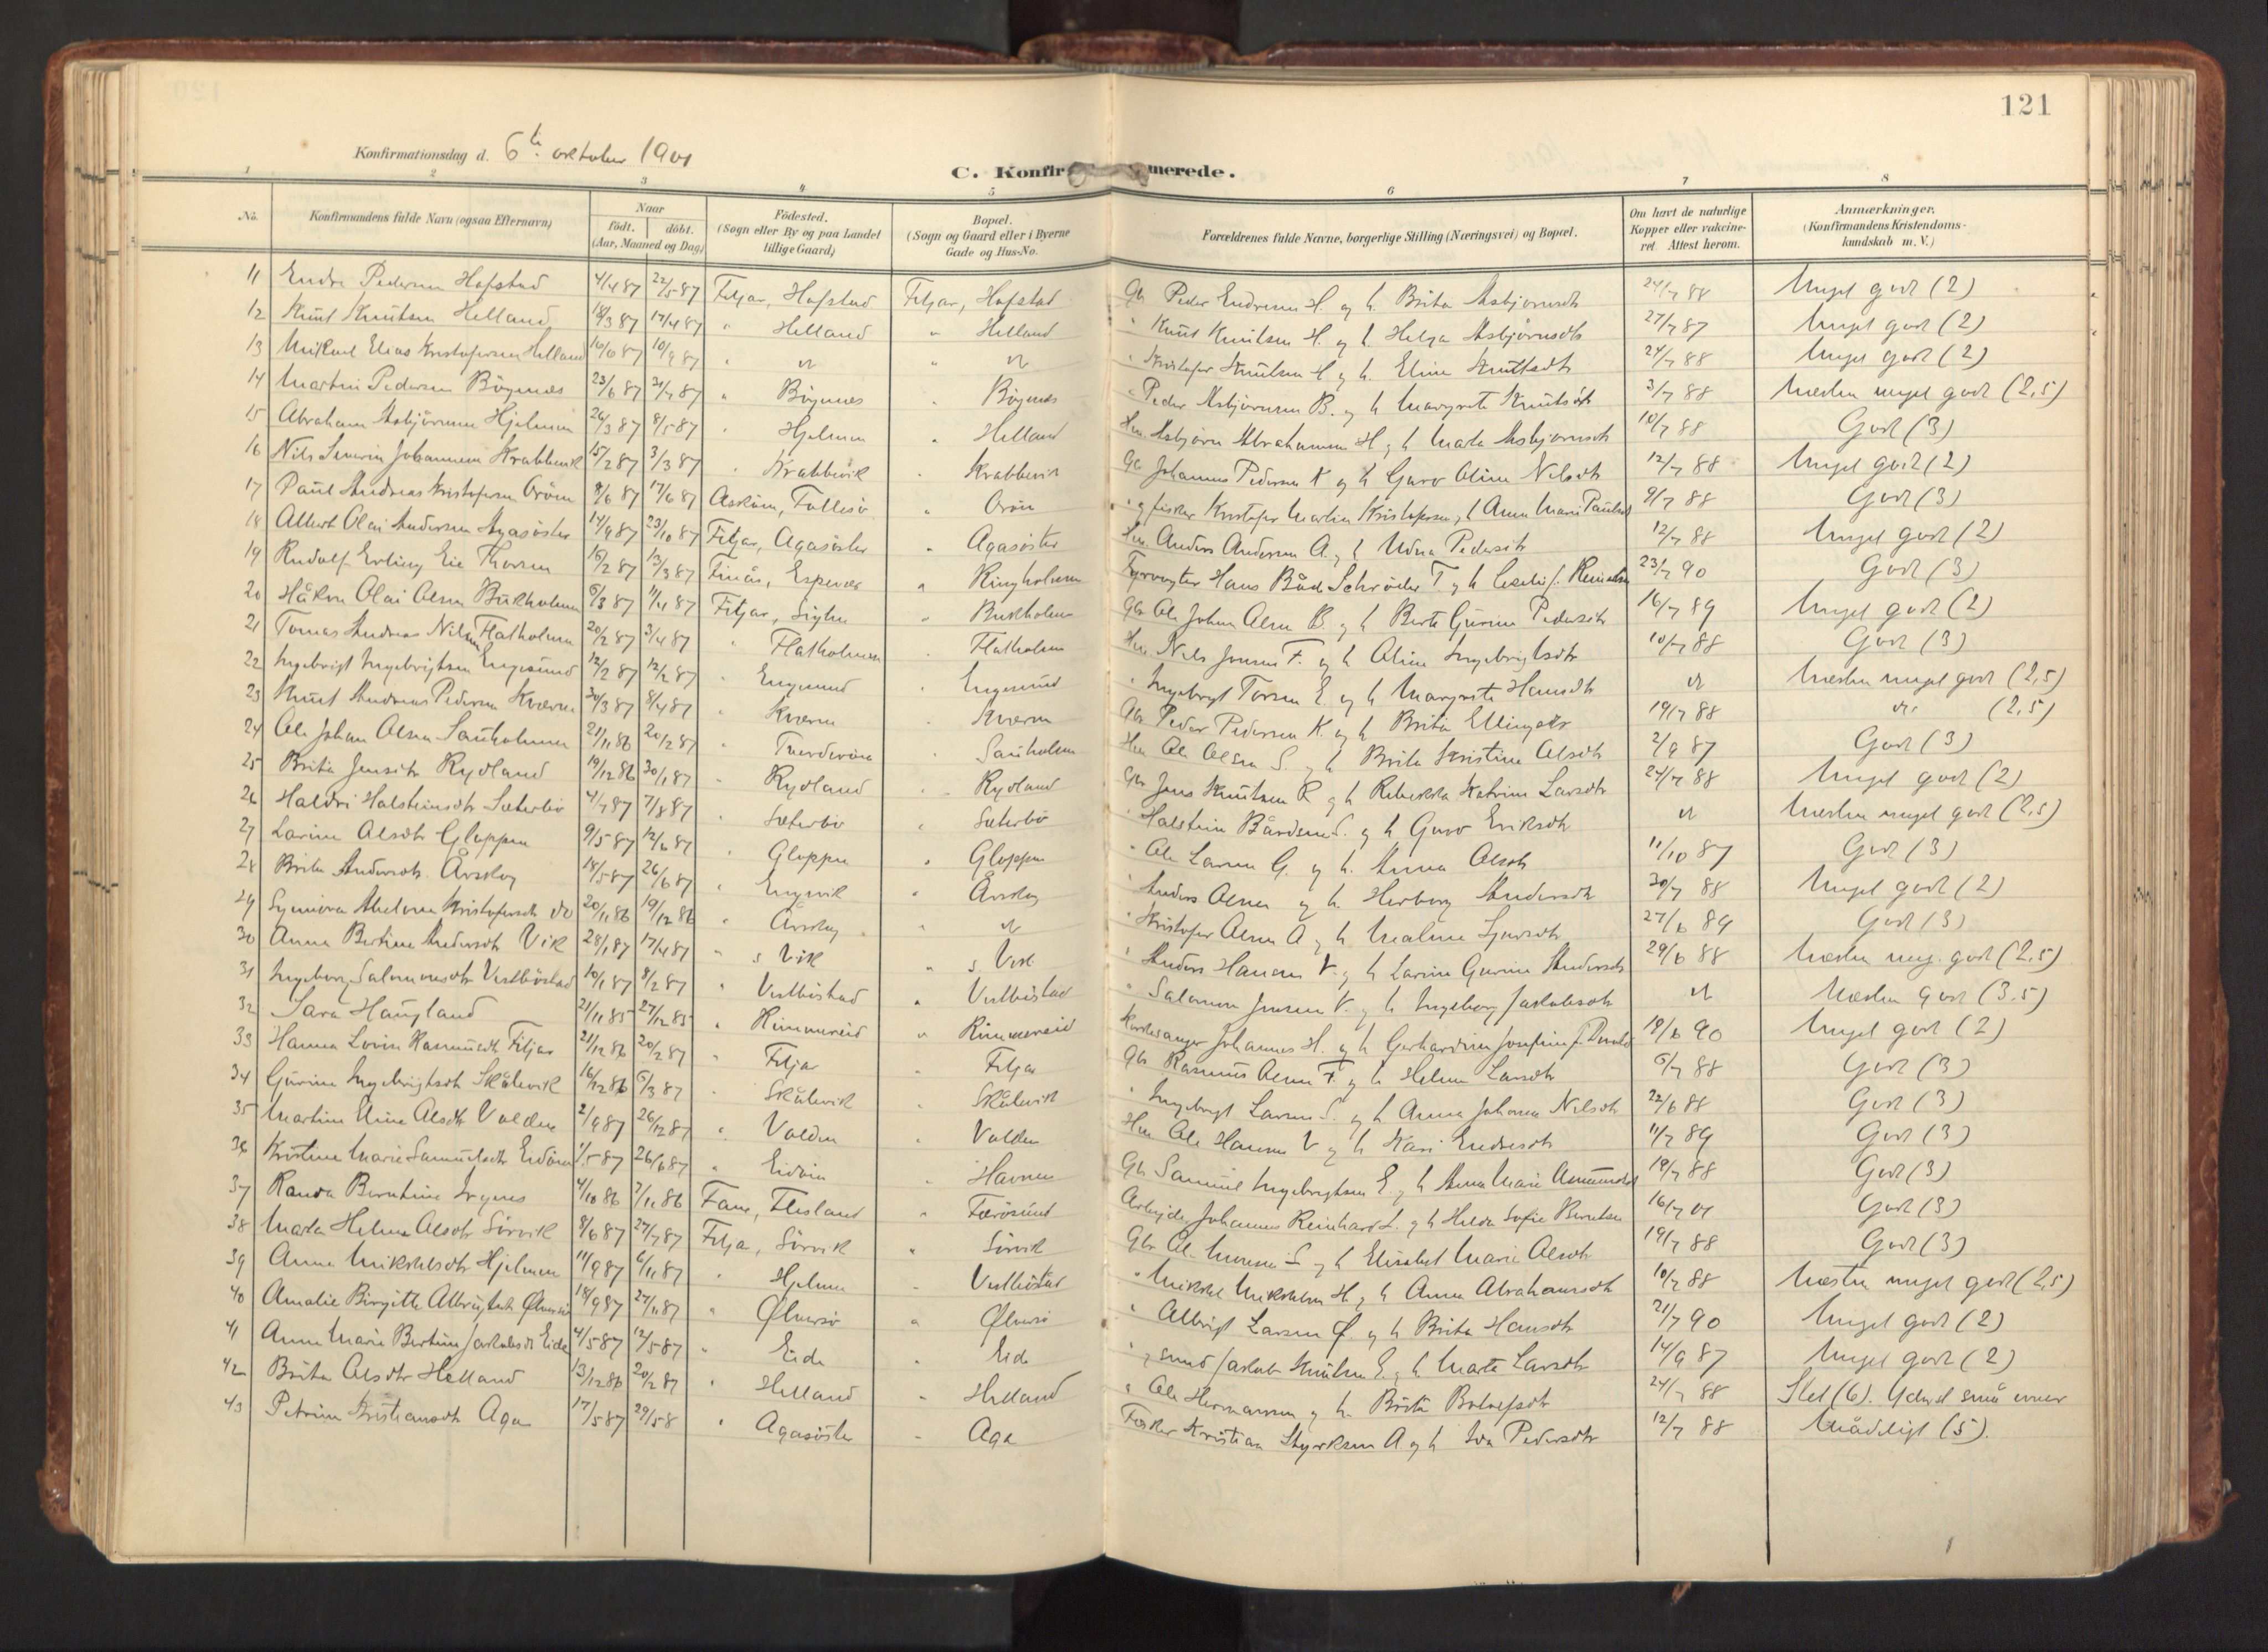 121
Konfirmationsdag d. 6te oktober 1901
C. Konfirmerede.
1 2 3 4 5 6 7 8
No. Konfirmandens fulde Navn (ogsaa Efternavn) Naar födt. döbt. (Aar, Maaned og Dag) Födested. (Sogn eller By og paa Landet tillige Gaard) Bopæl. (Sogn og Gaard eller i Byerne Gade og Hus-No. Forældrenes fulde Navne, borgerlige Stilling (Næringsvei) og Bopæl. Om havt de naturlige Kopper eller vaccineret. Attest herom. Anmærkninger. (Konfirmandens Kristendomskundskab m. V.)
11 Endre Pedersen Hofstad 4/4 87 22/5 87 Fitjar, Hofstad Fitjar, Hofstad Gbr Peder Endresen H. og h. Brita Asbjørnsdtr 24/7 88 Meget godt (2)
12 Knut Knutsen Helland 18/3 87 17/4 87 " Helland " Helland " Knut Knutsen H. og h. Helga Asbjørnsdtr 27/7 87 Meget godt (2)
13 Mikael Elias Kristofersen Helland 10/9 87 " do " do " Kristofer Knutsen H. og h. Eline Knutsdtr 24/7 88 Meget godt (2)
14 Martin Pedersen Bögenes 23/6 87 31/7 87 " Bögenes " Bögenes " Peder Asbjørnsen B. og h. Margrete Knutsdtr 3/7 88 Næsten meget godt (2,5)
15 Abraham Asbjörnsen Hjelmen 26/3 87 8/5 87 " Hjelmen " Helland Hm. Asbjørn Abrahamsen H. og h. Marta Asbjørnsdtr 10/7 88 Godt (3)
16 Nils Severin Johannesen Krabbevik 15/2 87 3/3 87 " Krabbevik " Krabbevik Gbr Johannes Pedersen K. og h. Guro Oline Nilsdtr 12/7 88 Meget godt (2)
17 Paul Andreas Kristofersen Oröen 17/6 87 Asköen, Follesö " Oröen " og fisker Kristofer Martin Kristofersen og h. Anna Marie Paulsdtr 9/7 88 Godt (3)
18 Albert Olai Andersen Agasöster 14/9 87 23/10 87 Fitjar, Agasöster " Agasöster Hm. Anders Andersen A. og h. Udna Pedersdtr 12/7 88 Meget godt (2)
19 Rudolf Erling Eie Thorsen 16/2 87 13/3 87 Finås, Espevær " Ringholmen Fyrvogter Hans Båd Schröder T. og h. 23/7 90 Godt (3)
20 Håkon Olai Olsen Bukholmen 6/3 87 11/4 87 Fitjar, " Bukholmen Gbr Ole Johan Olsen B. og h. Berte Gurine Pedersdtr 16/7 89 Meget godt (2)
21 Tomas Andreas Nilsen Flatholmen 20/2 87 3/4 87 " Flatholmen " Flatholmen Hm. Nils Jonsen F. og h. Oline Ingebrigtsdtr 10/7 88 Godt (3)
22 Ingebrigt Ingebrigtsen Engesund 12/2 87 " Engesund " Engesund " Ingebrigt Torsen E. og h. Margrete Hansdtr do Næsten meget godt (2,5)
23 Knut Andreas Pedersen Kværne 30/3 87 8/4 87 " Kværne " Kværne Gbr Peder Pedersen K. og h. Brita Ellingsdtr 19/7 88 do (2,5)
24 Ole Johan Olsen Sauholmen 21/11 86 20/2 87 " Tveröen " Sauholmen Hm Ole Olsen S. og h. Brita Kristine Olsdtr 2/9 87 Godt (3)
25 Brita Jensdtr Rydland 19/12 86 30/1 87 " Rydland " Rydland Gbr Jens Knutsen R. og h. Rebekka Katrine Larsdtr 24/7 88 Meget godt (2)
26 Haldri Halsteinsdtr Sæterbö 4/7 87 7/8 87 " Sæterbö " Sæterbö " Halstein Bårdsen S. og h. Guro Eriksdtr do Næsten meget godt (2,5)
27 Larine Olsdtr Gloppen 9/5 87 12/6 87 " Gloppen " Gloppen " Ole Larsen G. og h. Anna Olsdtr 11/10 87 Godt (3)
28 Brita Andersdtr Årskog 18/5 87 26/6 87 " Engevik " Årskog " Anders Olsen og h. Herborg Andersdtr 30/7 88 Meget godt (2)
29 Synnöva Kristofersdtr do 20/11 86 19/12 86 " Årskog " do " Kristofer Olsen A. og h. Malene Sjursdtr 27/6 89 Godt (3)
30 Anna Bertine Andersdtr Vik 28/1 87 17/4 87 " s Vik " s. Vik " Anders Hansen V. og h. Larine Gurine Andersdtr 29/6 88 Næsten meg. godt (2,5)
31 Ingeborg Salomonsdtr Vestböstad 10/1 87 8/2 87 " Vestböstad " Vestböstad " Salomon Jensen V. og h. Ingeborg Jakobsdtr do Næsten godt (3,5)
32 Sara Haugland 21/11 85 27/12 85 " Rimmereid " Rimmereid Kirkesanger Johannes H. og h. Gerhardine Josefine f. 18/6 90 Meget godt (2)
33 Hanna Lovise Rasmusdtr Fitjar 21/12 86 20/2 87 " Fitjar " Fitjar Gbr Rasmus Olsen F. og h. Helene Larsdtr 6/7 88 Godt (3)
34 Gurine Ingebrigtsdtr Skålevik 16/12 86 6/3 87 " Skålevik " Skålevik " Ingebrigt Larsen S. og h. Anna Johanna Nilsdtr 22/6 88 Godt (3)
35 Martine Eline Olsdtr Volden 2/9 87 26/12 87 " Volden " Volden Hm. Ole Hansen V. og h. Kari Endresdtr 11/7 89 Godt (3)
36 Kristine Marie Samuelsdtr Eidöen 1/5 87 26/6 87 " Eidöen " Havnen Gbr Samuel Ingebrigtsen E. og h. Anna Marie Amundsdtr 19/7 88 Godt (3)
37 Randa Berntine 4/10 86 7/11 86 Fane, Flesland " Færösund Arbejder Johannes Reinhard og h. Helda Sofie Berntsen 16/7 01 Godt (3)
38 Marta Helene Olsdtr Sörvik 8/6 87 27/7 87 Fitjar, Sörvik " Sörvik Gbr Ole Monsen S. og h. Elisabet Marie Olsdtr 19/7 88 Godt (3)
39 Anna Mikkelsdtr Hjelmen 11/9 87 6/11 87 " Hjelmen " Vestböstad " Mikkel Mikkelsen H. og h. Anna Abrahamsdtr 10/7 88 Næsten meget godt (2,5)
40 Amalie Birgitte Albrigtsdtr Ølversö 18/9 87 27/11 87 " Ølversö " Ølversö " Albrigt Larsen Ø. og h. Brita Hansdtr 21/7 90 Meget godt (2)
41 Anne Marie Bertine Jakobsdtr Eide 4/5 87 12/5 87 " Eide " Eide " og smed Jakob Knutsen E. og h. Marta Larsdtr 14/9 87 Meget godt (2)
42 Brita Olsdtr Helland 13/12 86 20/2 87 " Helland " Helland " Ole Hermansen og h. Brita 24/7 88 Slet (6). Yderst små evner
43 Petrine Kristiansdtr Aga 17/5 87 29/5 8 " Agasöster " Aga Fisker Kristian Styrksen A. og h. Ida Pedersdtr 12/7 88 Mådeligt (5).